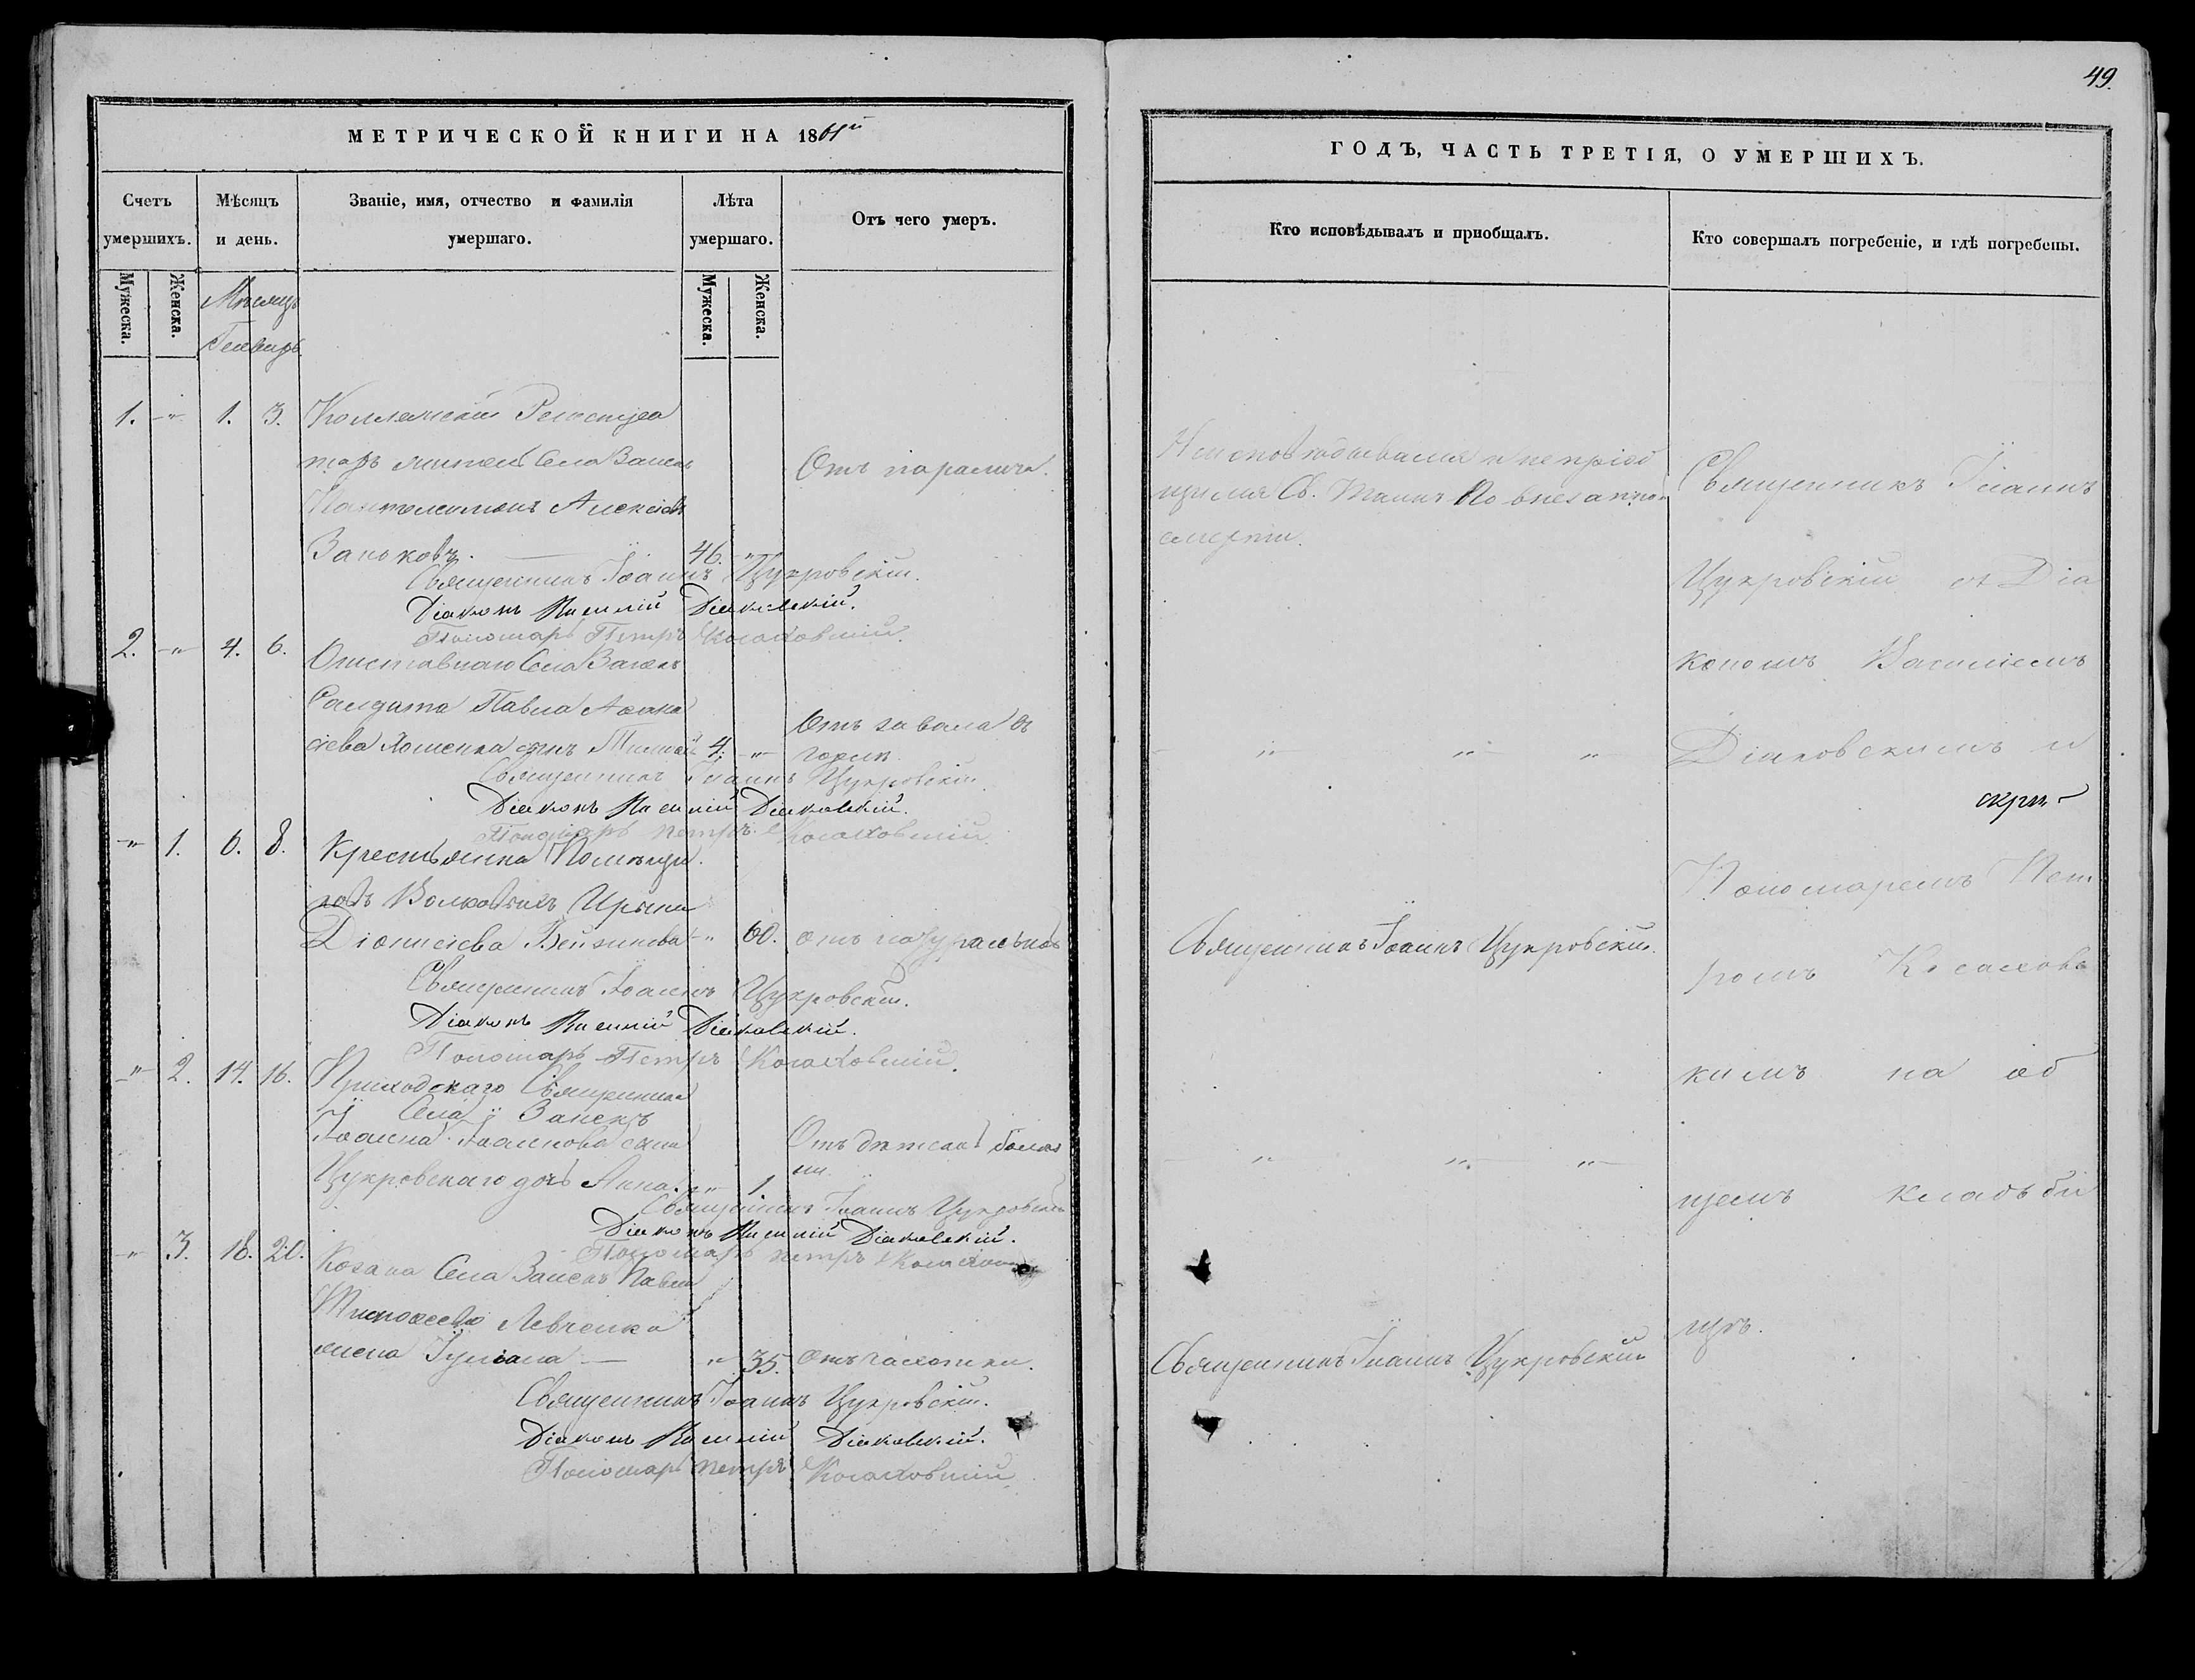 49.
МЕТРИЧЕСКОЙ КНИГИ НА 1861й
ГОДЪ, ЧАСТЬ ТРЕТІЯ, О УМЕРШИХЪ.
Счетъ умершихъ.
Мѣсяцъ и день.
Званіе, имя, отчество и фамилія умершаго.
Лѣта умершаго.
Отъ чего умеръ.
Кто исповѣдывалъ и пріобщалъ.
Кто совершалъ погребеніе, и гдѣ погребены.
Мужеска.
Женска.
Мѣсяцъ
Генваръ
Мужеска.
Женска.
1. -"- 1. 3. Коллежскій Регистра
торъ житель Села Зане
Пантелеимонъ Алексіевъ
Заньковъ. — 46. "
Отъ паралича.
Неисповѣдывался и непріоб
щился Св. Таинъ По внезапной
смерти.
Священникъ Іоаннъ Цукровскій.
Діаконъ Василій Діаковскій.
Пономарь Петръ Косаховскій.
2. -"- 4. 6. Отставнаго Села
Салдата Павла Аѳана
сіева Хоменка сынъ 4. -"-
Отъ завала въ
горлѣ.
-"- -"- -"-
Священникъ Іоаннъ Цукровскій
Діаконъ Василій Діаковскій.
Пономарь Петръ Косаховскій
-"- 1. 6. 8. Крестьянка Помѣщи
ковъ Ирина
Діонисіева -"- 60. отъ натуральной
Священникъ Іоаннъ Цукровскій.
Священникъ Іоаннъ Цукровскій.
Діаконъ Василій Діаковскій.
Пономарь Петръ Косаховскій.
-"- 2. 14. 16. Приходскаго Священника
Села
Іоанна Іоаннова сына
Цукровскаго дочь Анна. -"- 1.
Отъ дѣтской болѣз
ни
-"- -"- -"-
Священникъ Іоаннъ Цукровскій
Діаконъ Василій Діаковскій.
Пономарь Петръ
-"- 3. 18. 20. Козака Села Павла
Левченка
жена Іуліана — " 35. отъ чахотки.
Священникъ Іоаннъ Цукровскій
Священникъ Іоаннъ Цукровскій.
Діаконъ Василій Діаковскій.
Пономарь Петръ Косаховскій
Священникъ Іоаннъ
Цукровскій съ Діа
кономъ Василіемъ
Діаковскимъ и
скрѣ
Пономаремъ Пет
ромъ Косаховс
кимъ на об
щемъ кладьби
щѣ.